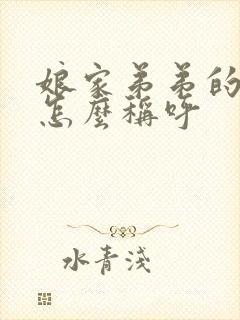 娘家弟弟的
怎麼稱呼
水青淺